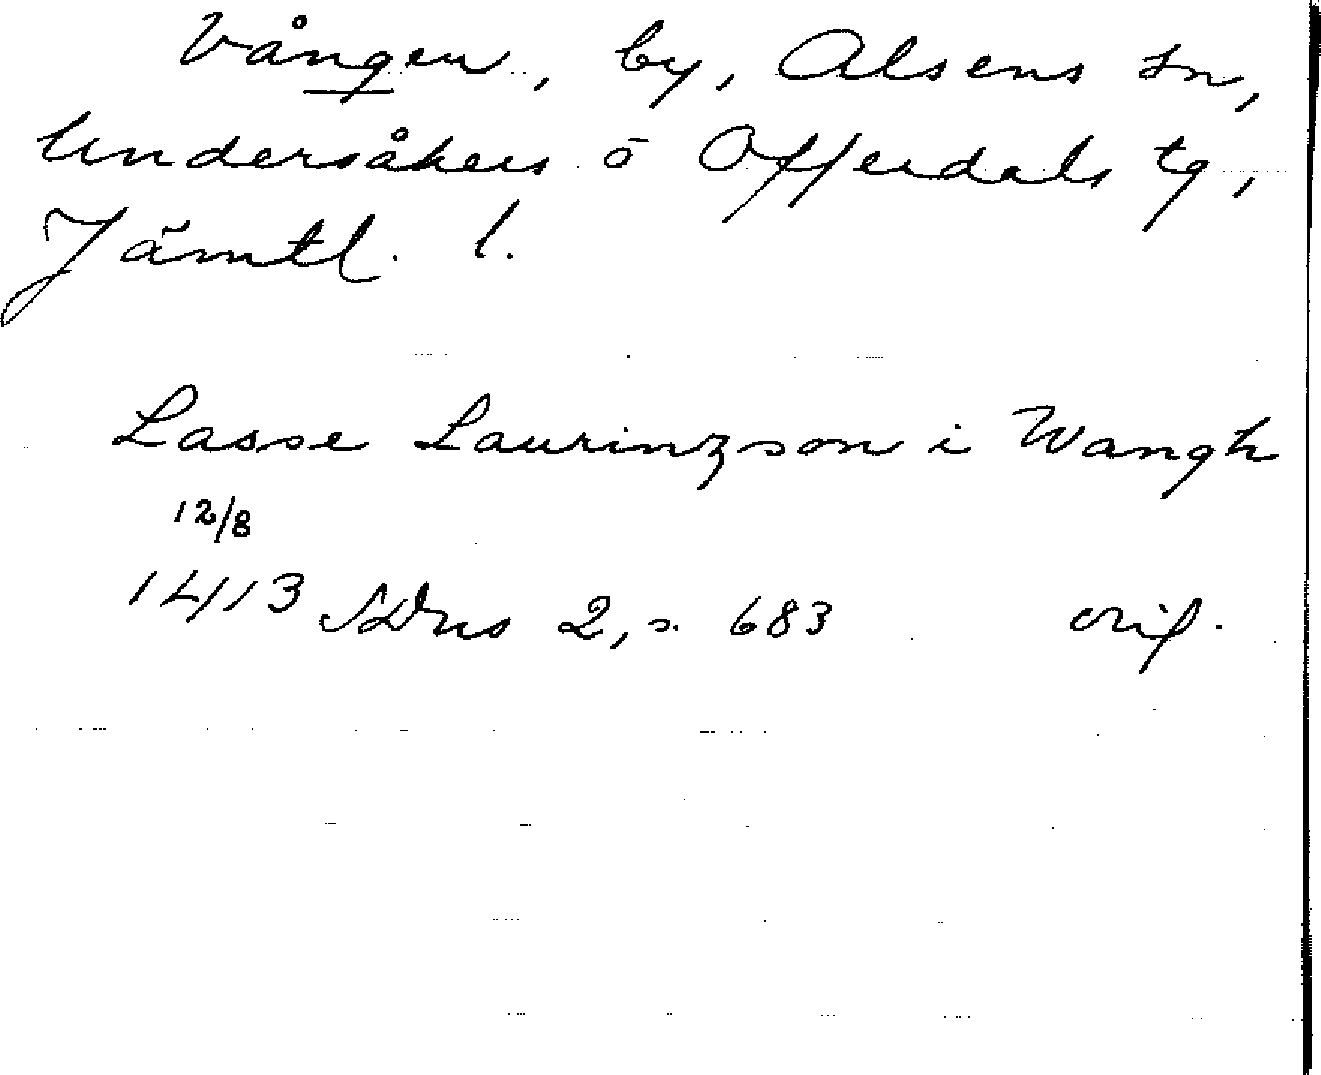 Vången, by, Alsens sn,
Undersåkers o Offerdals tg,
Jämtl. l.
Lasse Laurinzson i Wangh
12/8
1413 SDns 2, s. 683 orig.